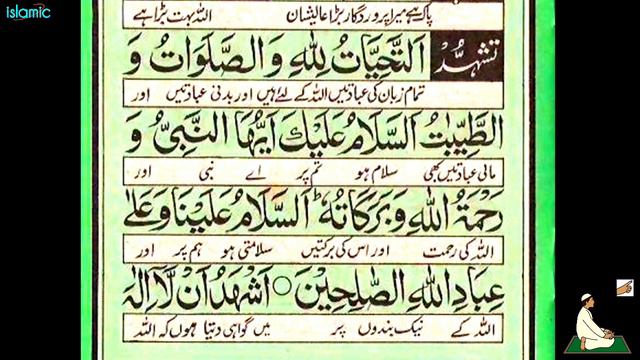 islamic
پاک ہے میرا پروردگار بڑا عالیشان اللہ بہت بڑا ہے
تشہد اَلتَّحِيَّاتُ لِلّٰهِ وَالصَّلَوَاتُ وَ
تمام زبان کی عبادتیں اللہ کے لئے ہیں اور بدنی عبادتیں اور
الطَّيِّبٰتُ اَلسَّلَامُ عَلَيْكَ اَيُّهَا النَّبِيُّ وَ
مالی عبادتیں بھی سلام ہو تم پر اے نبی اور
رَحْمَةُ اللّٰهِ وَبَرَكَاتُهٗ ؕ اَلسَّلَامُ عَلَيْنَا وَعَلٰى
اللہ کی رحمت اور اس کی برکتیں سلامتی ہو ہم پر اور
عِبَادِ اللّٰهِ الصّٰلِحِيْنَ ○ اَشْهَدُ اَنْ لَّا اِلٰهَ
اللہ کے نیک بندوں پر میں گواہی دیتا ہوں کہ اللہ